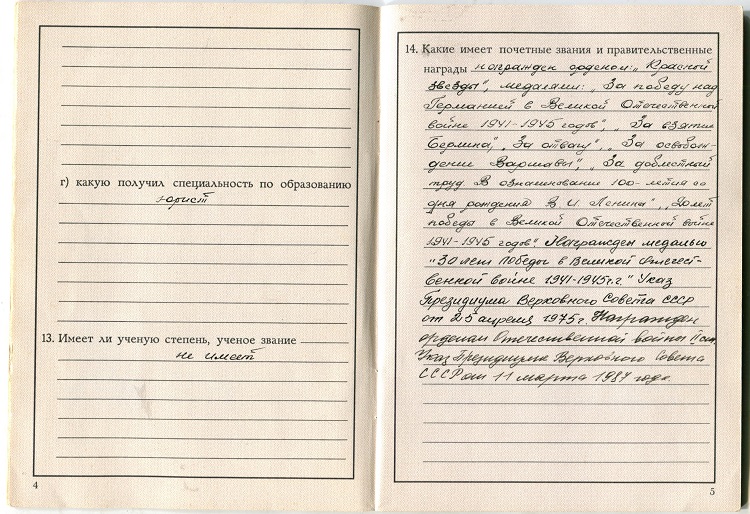 г) какую получил специальность по образованию
юрист
13. Имеет ли ученую степень, ученое звание
не имеет
4
14. Какие имеет почетные звания и правительственные
награды награжден орденом: „Красной
звезды", медалями: „За победу над
Германией в Великой Отечественной
войне 1941-1945 годов", „За взятие
Берлина", „За отвагу", „За освобож-
дение Варшавы", „За доблестный
труд В ознаменование 100-летия со
дня рождения В. И. Ленина", лет
победы в Великой Отечественной войне
1941-1945 годов". Награжден медалью
„30 лет Победы в Великой Отечест-
венной войне 1941-1945г.г." Указ
Президиума Верховного Совета СССР
от 25 апреля 1975г. Награжден
орденом Отечественной войны II ст.
Указ Президиума Верховного Совета
СССР от 11 марта 1987 года.
5